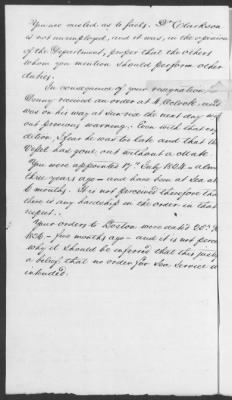 You are misled as to facts. Dr Clarkson
is not unemployed, and it was, in the opinion
of the Department, proper that the others
whom you mention should perform other
duties.
In consequence of your resignation
Denny received an order at 4. oclock, and
was on his way at sunrise the next day with
out previous warning. Even with that
dition, I fear he was too late and that the
Vessel has gone out without a
You were appointed 17th July almost
three years ago — and have been at Sea
6 months. It is not perceived therefore that
there is any hardship in the order in that
respect.
Your orders to Boston were dated 20th
five months ago — and it is not
why it should be inferred that this
a belief, that no order for Sea Service
intended.